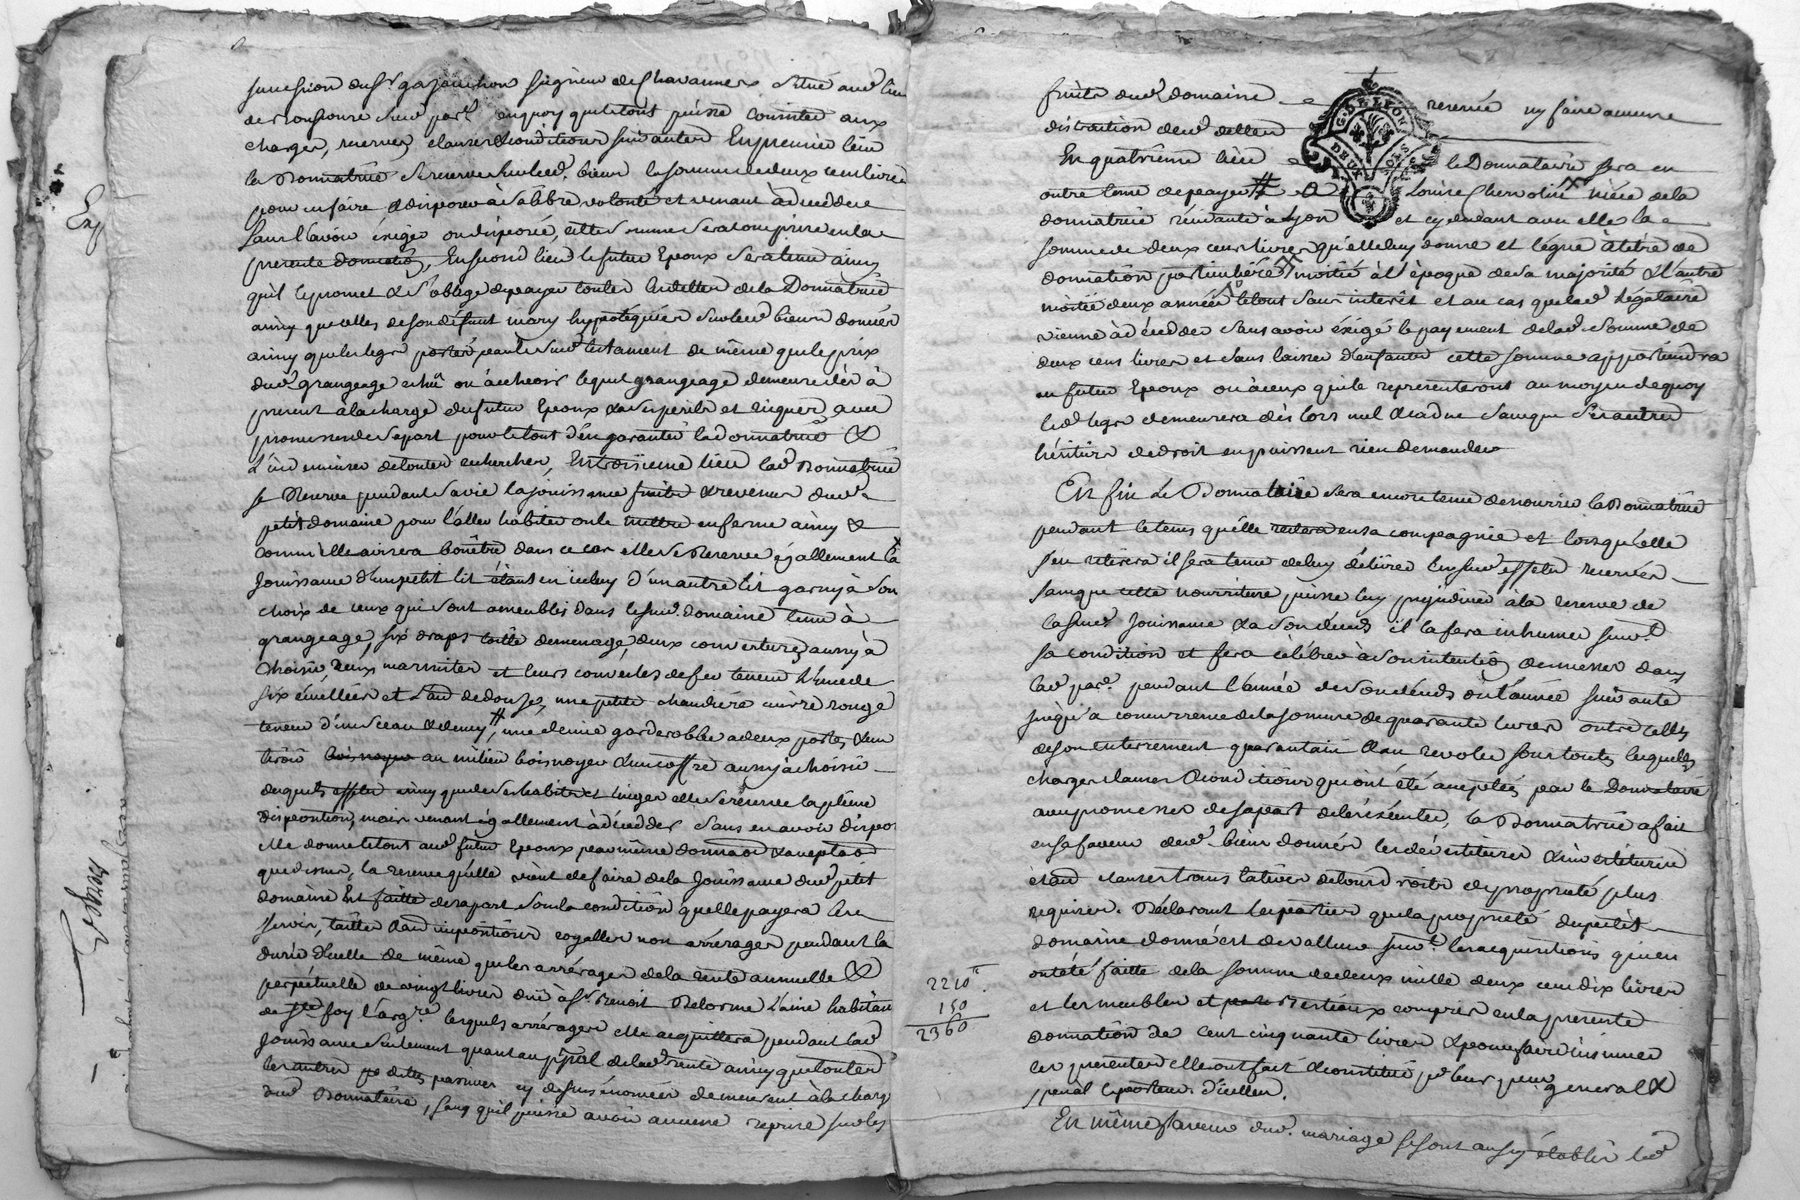 succession du Sr. gajonchon seigneur de Chavannes situé aud. lieu
susd. parr. en quoy quil tout puisse consister aux
charges, reserves, clauses & conditions suivantes En premier lieu
la Donnatrice se reserve sur lesd. biens la somme de deux cens livres
pour en faire & disposer à sa libre volonté et venant à décéder
sans l'avoir éxigé ou disposée, cette somme sera comprise en la
presente donnation, En second lieu le futur Epoux sera tenu ainsy
quil le promet & s'oblige de payer toutes les dettes de la Donnatrice
ainsy que celles de son défunt mary hypotéquées sur lesd. biens donnés
ainsy que les legs portés par le susd. testament de même que le prix
dud. grangeage echû ou à echeoir lequel grangeage demeure dès à
present à la charge du futur Epoux & à ses perils et risques, avec
promesse de sa part pour le tout d'en garantir la donnatrice &
l'indemniser de toutes recherches, En troisieme lieu lad. Donnatrice
se Reserve pendant sa vie la jouissance fruits & revenus dud.
petit domaine pour l'aller habiter ou le mettre en ferme ainsy &
comm'elle avisera bon être dans ce cas elle se Reserve égallement la
Jouissance d'un petit lit étant en iceluy d'un autre lit garny à son
choix de ceux qui sont ameublés dans le susd. domaine tenu à
grangeage, six draps toille de menage, deux couvertures aussy à
Choisir, deux marmites et leurs couvercles de fer tenant l'une de
six écuellées et l'au. de douse, une petite chaudière cuivre rouge
teneur d'un sceau & demy #, une demie garderobbe a deux portes & un
tiroir bois noyer au milieu bois noyer & un coffre aussy à choisir
desquels effets ainsy que de ses habits et linges elle se réserve la pleine
disposition, mais venant égallement à décéder sans en avoir dispo
elle donne le tout aud. futur Epoux par même donnaon & acceptaon
que dessus, la reserve qu'elle vient de faire de la Jouissance dud. petit
domaine Est faitte de sa part sous la condition quelle payera les
servis, tailles & au. impositions royalles non arrérages pendant la
durée d'icelle de même que les arrérages de la rente annuelle &
perpétuelle de vingt livres dûe à Sr. Benoit Delorme l'ainé habitan
de Ste. foy l'arg.re lesquels arrérages elle acquittera pendant lad.
Jouissance seulement quant au ppal de lad. rente ainsy que toutes
les autres dettes passives cy dessus énoncées demeurent à la charge
dud. Donnataire, sans quil puisse avoir aucune reprise sur les
Exp
fruits dud. domaine reservée ny faire aucune
distraction desd. dettes
En quatrième lieu le Donnataire sera en
outre tenu de payer # à Louise Chervolin nièce de la
donnatrice résidante à Lyon et cy devant avec elle la
somme de deux cens livres qu'elle luy donne et lègue à titre de
donnation particulière moitié à l'époque de sa majorité & l'autre
moitié deux années le tout sans interêt et au cas que lad. légataire
vienne à décéder sans avoir éxigé le payement de lad. somme de
deux cens livres et sans laisser d'enfants cette somme appartiendra
au futur Epoux ou à ceux qui le representeront au moyen de quoy
led. legs demeurera dès lors nul & caduc sans que ses autres
héritiers de droit en puissent rien demander
En fin le Donnataire sera encore tenu de nourrir la Donnatrice
pendant le tems qu'elle restera en sa compagnie et lorsqu'elle
s'en retirera il sera tenu de luy délivrer les susd. effets reservés
sans que cette nourriture puisse luy prejudicier à la reserve de
la susd. Jouissance & à son décès il la fera inhumer suiv.t
sa condition et fera célébrer à son intention des messes dans
lad. parr. pendant l'année de son décès ou l'année suivante
jusqu'a concurrence de la somme de quarante livres outre celles
de son enterrement quarantain & au revolu sous toutes lesquelles
charges clauses & conditions qui ont été acceptées par le Donnataire
avec promesse de sa part de les éxécuter, la Donnatrice a fait
en sa faveur desd. biens donnés les dévestitures & investitures
et au. clauses translatives de tous droits de propriété plus
requises. Déclarant les parties que la propriété du petit
domaine donné est de valleur suiv.t les acquisitions qui en
ont été faitte de la somme de deux mille deux cens dix livres
et les meubles et bestiaux compris en la presente
donnation de cent cinquante livres & pour faire insinuer
ces presentes elles ont fait & constitué pr leur pcur general &
special le porteur d'icelles.
En même faveur dud. mariage se sont aussy établis led.
2210 tt
150
2360
G. DE LYON
DEUX SOLS